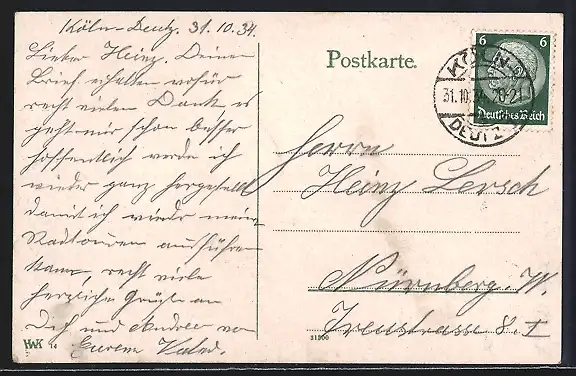 Köln-Deutz. 31.10.34.
Lieber Heinz. Deinen
Brief erhalten wofür
recht vielen Dank es
geht mir schon besser
hoffentlich werde ich
wieder ganz hergestellt
damit ich wieder meine
Radtouren ausführen
kann, recht viele
herzliche Grüße an
Dich und Andree von
Eurem
HWK 14
Postkarte.
6 6
Deutsches Reich
KÖLN
31.10.34 20-21
DEUTZ
Herrn
Heinz Lersch
Nürnberg. W.
8. I
31900